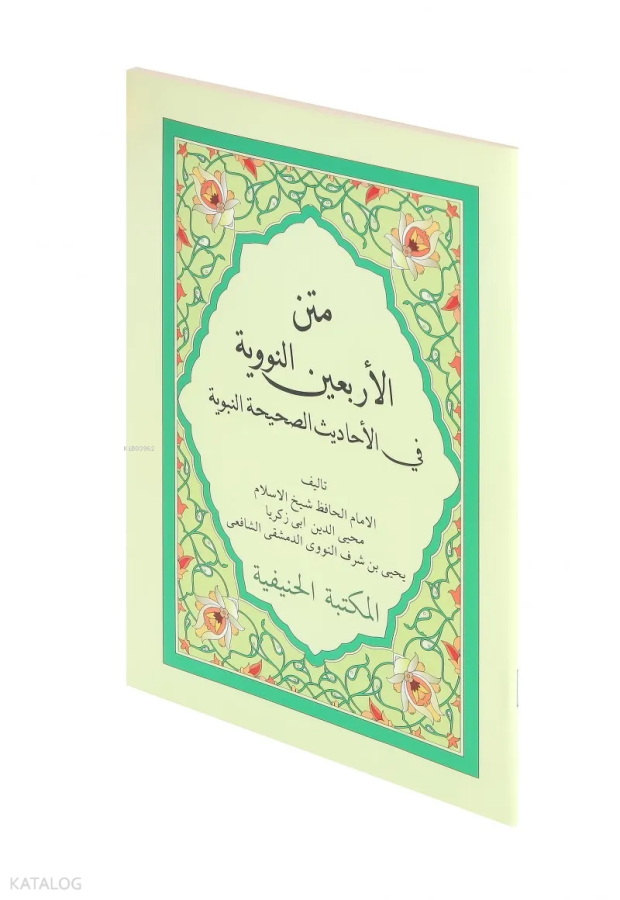 متن
الأربعين النووية
في الأحاديث الصحيحة النبوية
تاليف
الامام الحافظ شيخ الاسلام
محيى الدين ابى زكريا
يحيى بن شرف النووى الدمشقى الشافعى
المكتبة الحنيفية
KATALOG